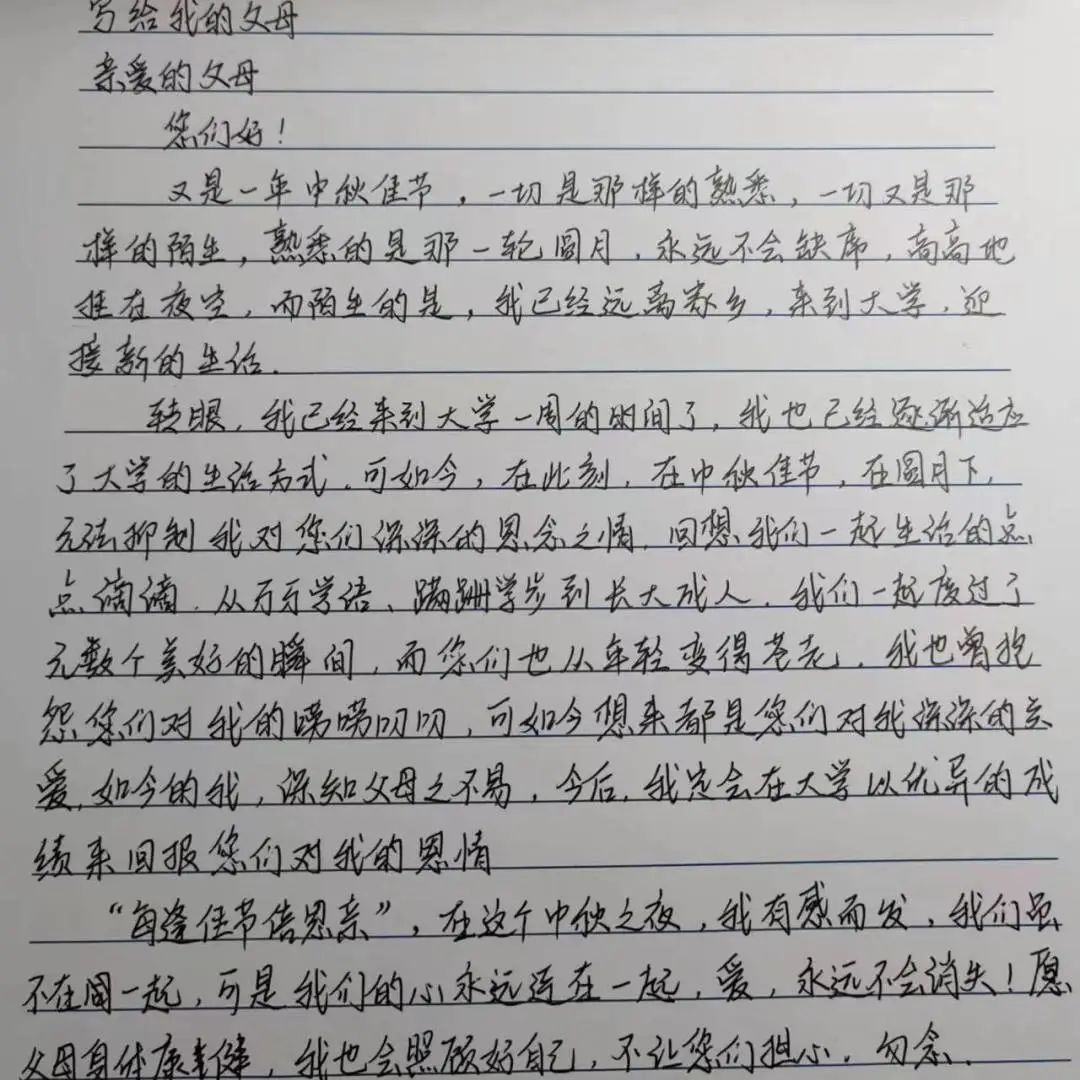 写给我的父母
亲爱的父母
您们好！
又是一年中秋佳节，一切是那样的熟悉，一切又是那
样的陌生，熟悉的是那一轮圆月，永远不会缺席，高高地
挂在夜空，而陌生的是，我已经远离家乡，来到大学，迎
接新的生活.
转眼，我已经来到大学一周的时间了，我也已经逐渐适应
了大学的生活方式.可如今，在此刻，在中秋佳节，在圆月下，
无法抑制我对您们深深的思念之情.回想我们一起生活的点
点滴滴.从万万学语、蹒跚学步到长大成人.我们一起度过了
无数个美好的瞬间，而您们也从年轻变得苍老.我也曾抱
怨您们对我的唠唠叨叨，可如今想来都是您们对我深深的关
爱.如今的我，深知父母之不易，今后，我定会在大学以优异的成
绩来回报您们对我的恩情
“每逢佳节倍思亲”，在这个中秋之夜，我有感而发，我们虽
不在同一起，可是我们的心永远连在一起，爱，永远不会消失！愿
父母身体康健，我也会照顾好自己，不让您们担心.勿念.